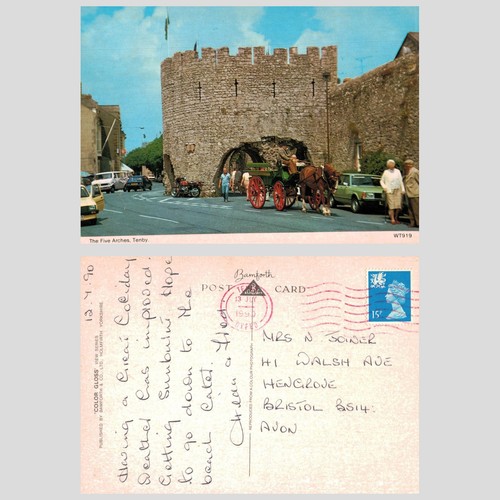 The Five Arches, Tenby.
WT919
Bamforth
POST CARD
"COLOR GLOSS" VIEW SERIES
PUBLISHED BY BAMFORTH & CO. LTD., HOLMFIRTH, YORKSHIRE.
REPRODUCED FROM A COLOUR PHOTOGRAPH
12.7.90
Having a Great Holiday
Weather has improved.
Getting Sunburn Hope
to go down to the
beach Later.
& Fred
1990
15P
MRS N JOINER
41 WALSH AVE
HENGROVE
BRISTOL BS14.
AVON